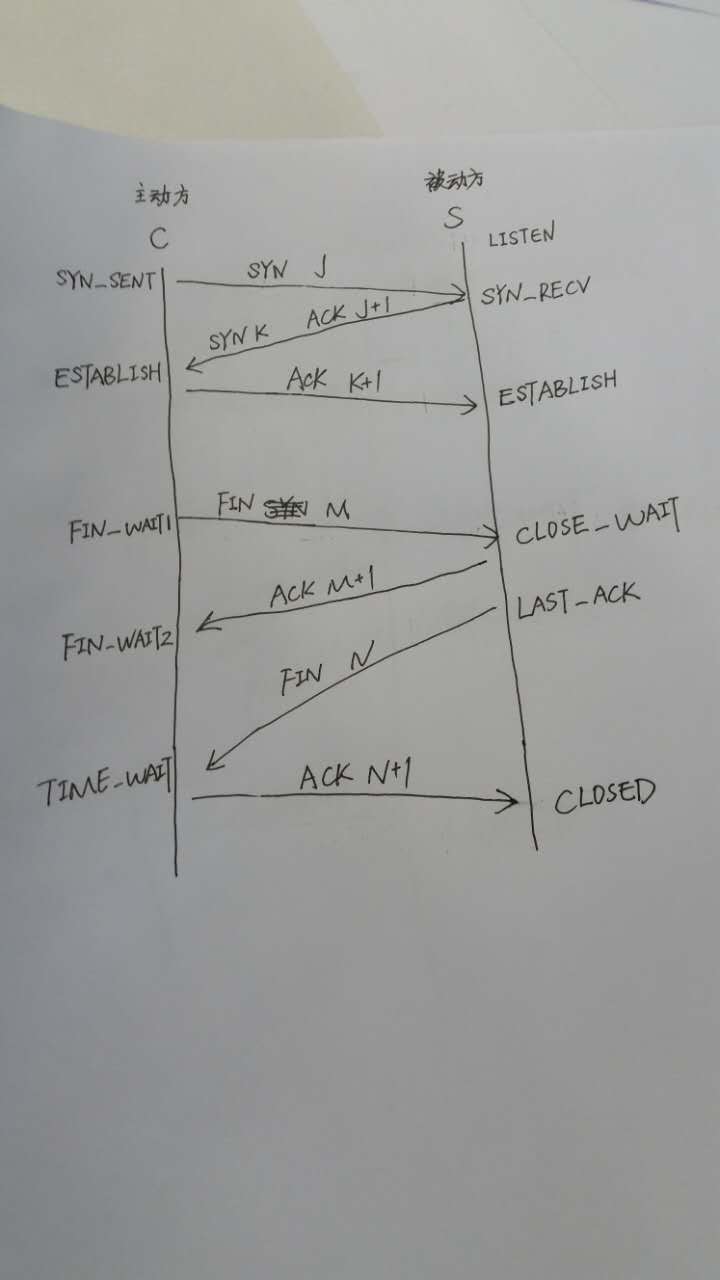 主动方 被动方
C S
LISTEN
SYN_SENT SYN J
SYN_RECV
SYN K ACK J+1
ESTABLISH ACK K+1 ESTABLISH
FIN_WAIT1 FIN M CLOSE_WAIT
ACK M+1
FIN_WAIT2 LAST_ACK
FIN N
TIME_WAIT ACK N+1 CLOSED